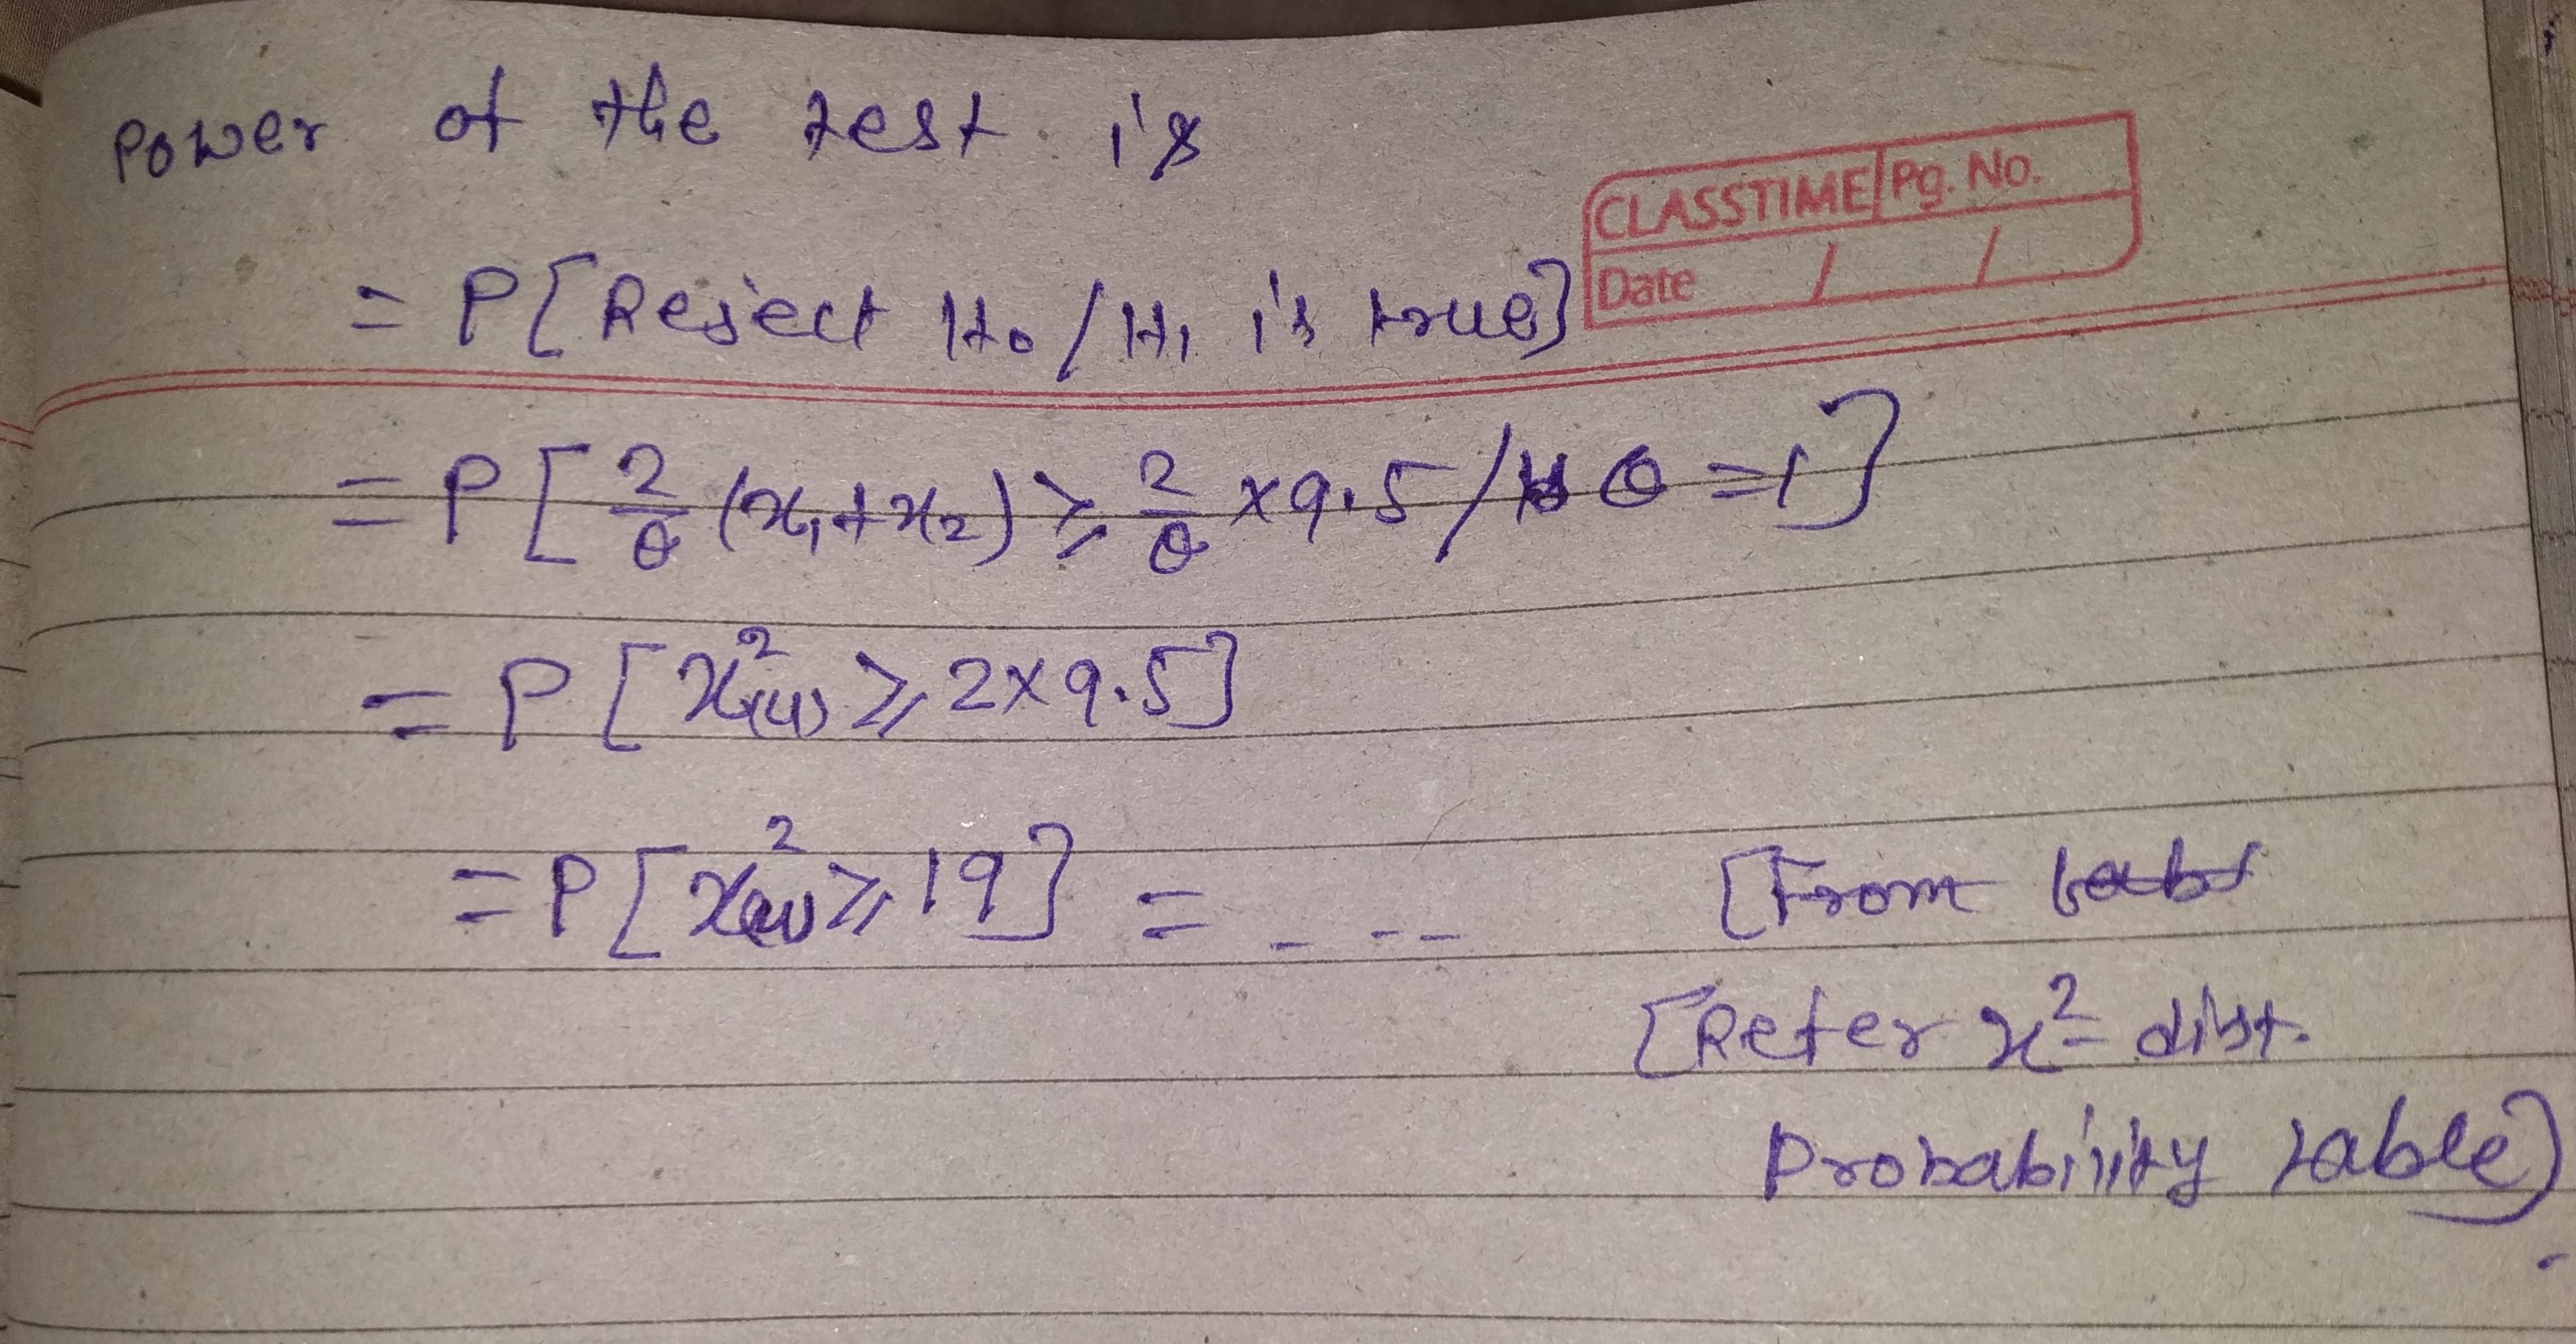 Power of the test is
CLASSTIME Pg. No.
Date / /
= P[Reject H₀/H₁ is true]
= P[2/θ (x₁+x₂) ≥ 2/θ × 9.5 / θ = 1]
= P[χ²₍₄₎ ≥ 2×9.5]
= P[χ²₍₄₎ ≥ 19] = - - - - [From
[Refer χ² dist.
Probability table]